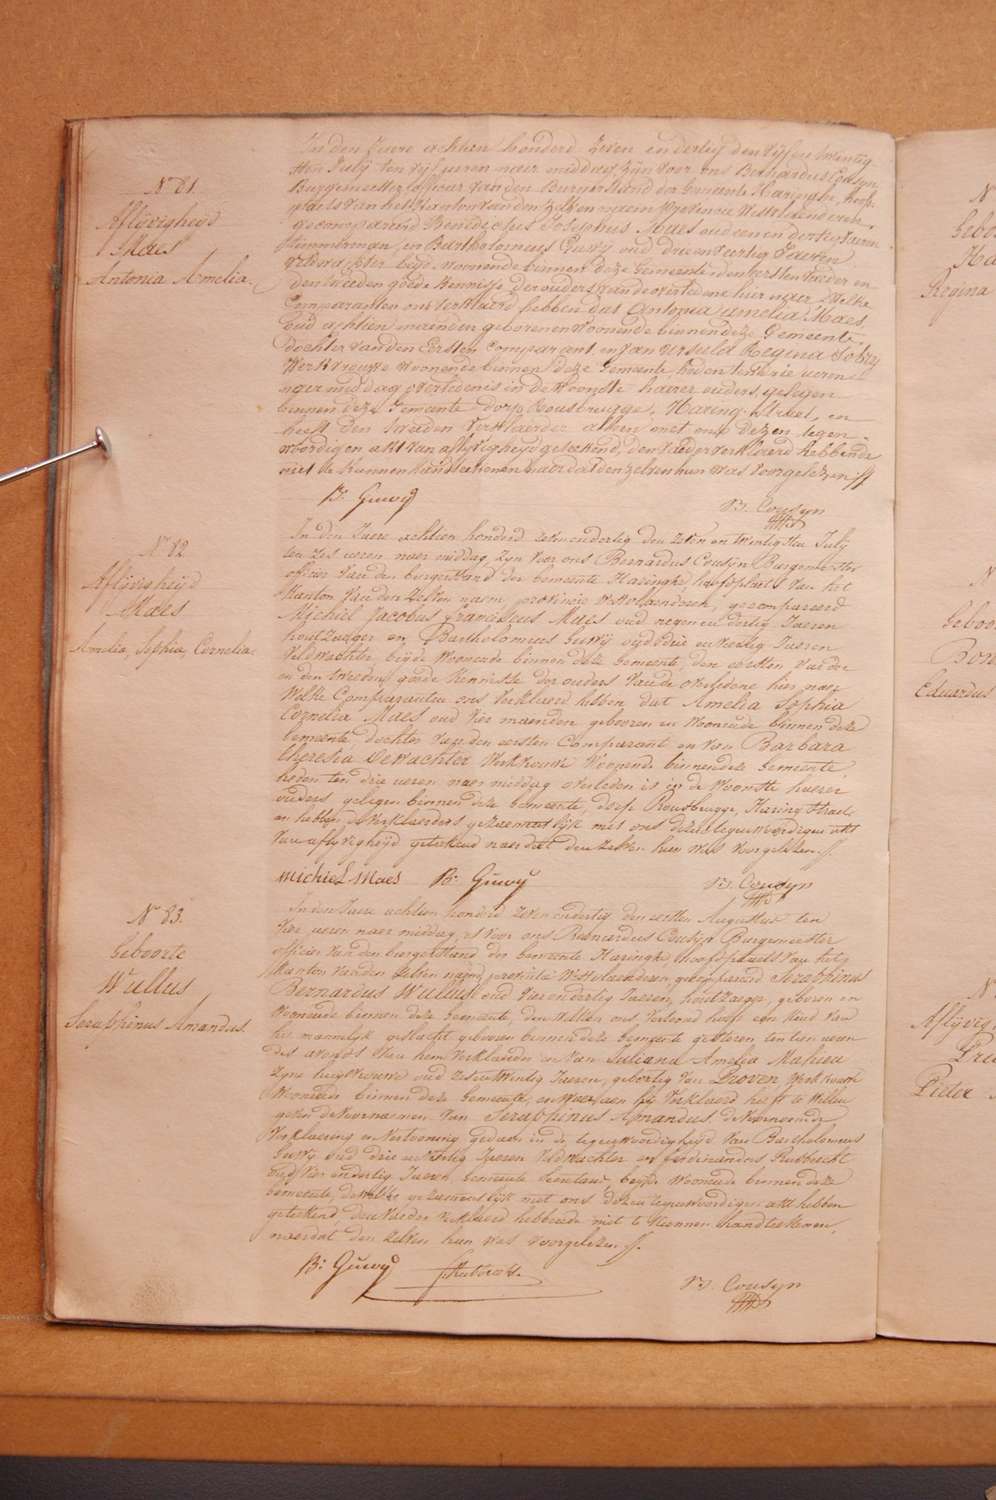 N° 81.
Aflijvigheyd
Maes
Antonia Amelia.
In den Jaere achtien honderd zeven en dertig den vijf en twintig
sten July ten vijf ueren naer middag zijn voor ons Bernardus Cousyn
Burgemeester officier van den Burgerstand der Gemeente Haringhe, hoofd
plaets van het Kanton van den zelven naem provincie Westvlaenderen
gecompareerd Benedictus Josephus Maes oud een en dertig Jaeren
timmerman, en Bartholomeus Guwy oud drie en veertig Jaeren
veldwachter beyde woonende binnen deze Gemeente, den eersten vader en
den tweeden goede kennisse der ouders van de overledene hier naer. Welke
Comparanten ons verklaerd hebben dat Antonia Amelia Maes
oud achtien maenden geboren en woonende binnen deze Gemeente
dochter van den Eersten comparant en van Ursula Regina Sohry
Werkvrouwe woonende binnen deze Gemeente heden ten drie ueren
naer middag overleden is in de Woonste haerer ouders, gelegen
binnen deze Gemeente dorp Rousbrugge, Haring straet, en
heeft den tweeden verklaerder alleen met ons dezen tegen
woordigen akt van aflyvigheyd geteekend, den vader verklaerd hebbende
niet te kunnen handteekenen naer dat den zelven hun was voorgelezen
B: Guwy
Bd. Cousyn
N° 82
Aflijvigheyd
Maes
Amelia, Sophia, Cornelia.
In den Jaere achtien honderd zeven en dertig den zeven en twintigsten July
ten zes ueren naer middag, zyn voor ons Bernardus Cousyn Burgemeester
officier van den burgerstand der Gemeente Haringhe hoofdplaets van het
Kanton van den zelven naem, provincie Westvlaenderen, gecompareerd
Michiel Jacobus Franciscus Maes oud negen en dertig Jaeren
houtzaeger en Bartholomeus Guwy oud drie en veertig Jaeren
Veldwachter beyde woonende binnen deze Gemeente, den eersten vader
en den tweeden goede kennisse der ouders van de overledene hier naer
Welke Comparanten ons verklaerd hebben dat Amelia Sophia
Cornelia Maes oud vier maenden geboren en woonende binnen deze
Gemeente, dochter van den eersten Comparant en van Barbara
Theresia Dewachter Werkvrouwe Woonende binnen deze Gemeente,
heden ten drie ueren naer middag overleden is in de Woonste haerer
ouders gelegen binnen deze Gemeente dorp Rousbrugge, Haring straet
en hebben de verklaerders gezaementlyk met ons dezen tegenwoordigen akt
van aflyvigheyd geteekend naer dat den zelven hun was voorgelezen
Michiel Maes B: Guwy
Bd. Cousyn
N° 83.
Geboorte
Wullus
Seraphinus Amandus.
In den Jaere achtien honderd zeven en dertig den eersten Augustus ten
vier ueren naer middag is voor ons Bernardus Cousyn Burgemeester
officier van den burgerstand der Gemeente Haringhe hoofdplaets van het
Kanton van den zelven naem, provintie Westvlaenderen, gecompareerd Seraphinus
Bernardus Wullus oud vier en dertig Jaeren, houtzaeger, geboren en
Woonende binnen deze Gemeente, den welken ons vertoond heeft een kind van
het mannelyk geslacht geboren binnen deze Gemeente gisteren ten tien ueren
des avonds van hem verklaerder en van Juliana Amelia Mahieu
zyne huysvrouwe oud zes en twintig Jaeren, geboortig van Proven, Werkvrouwe
Woonende binnen deze Gemeente, en waer aen hij verklaerd heeft te willen
geven de voornaemen van Seraphinus Amandus, de voornoemde
verklaering en vertooning gedaen in de tegenwoordigheyd van Bartholomeus
Guwy oud drie en veertig Jaeren Veldwachter en Ferdinandus Rubbrecht
oud vier en dertig Jaeren, Gemeente Secretaris, beyde Woonende binnen deze
Gemeente, de welke gezamentlyk met ons dezen tegenwoordigen akt hebben
geteekend, den vader verklaerd hebbende niet te kunnen handteekenen,
naer dat den zelven hun was voorgelezen
B: Guwy
Bd. Cousyn
Geboo
Ha
Regina
Geboo
Eduardus
Aflijvig
Pieter